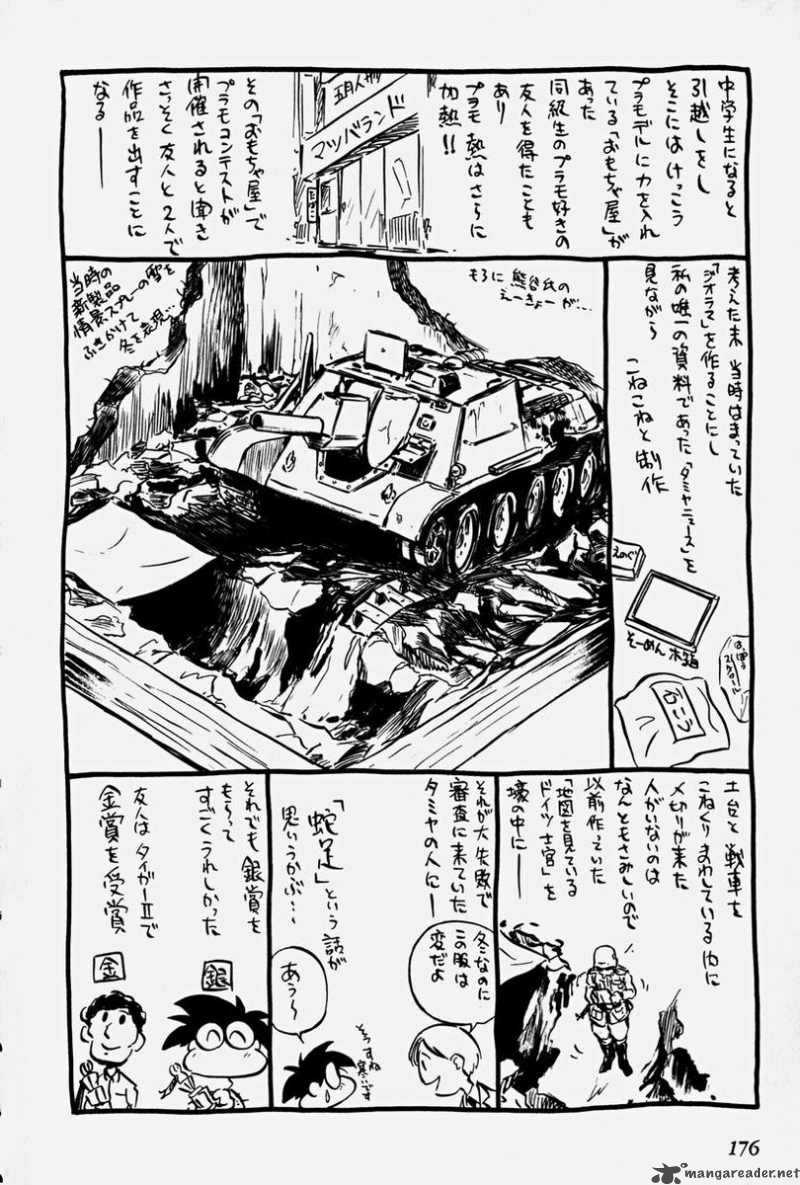 中学生になると
引越しをし
そこにはけっこう
プラモデルに力を入れ
ている「おもちゃ屋」が
あった
同級生のプラモ好きの
友人を得たことも
あり
プラモ熱はさらに
加熱!!
五月人形
マツバランド
その「おもちゃ屋」で
プラモコンテストが
開催されると聞き
さっそく友人と2人で
作品を出すことに
なる――
考えた末 当時はまっていた
「ジオラマ」を作ることにし
私の唯一の資料であった「タミヤニュース」を
見ながら
こねこねと制作
えのぐ
そーめん木箱
もろに 熊谷氏の
えーきょーが…
当時の
新製品
情景スプレーの雪を
ふきかけて
冬を表現…
土台と戦車を
こねくりまわしている内に
〆切りが来た
人がいないのは
なんともさみしいので
以前作っていた
「地図を見ている
ドイツ士官」を
壕の中に――
それが大失敗で
審査に来ていた
タミヤの人に――
冬なのに
この服は
変だよ
「蛇足」という話が
思いうかぶ…
あう〜
そうすね
寒いす
それでも銀賞を
もらって
すごくうれしかった
友人はタイガーⅡで
金賞を受賞
銀
金
176
mangareader.net